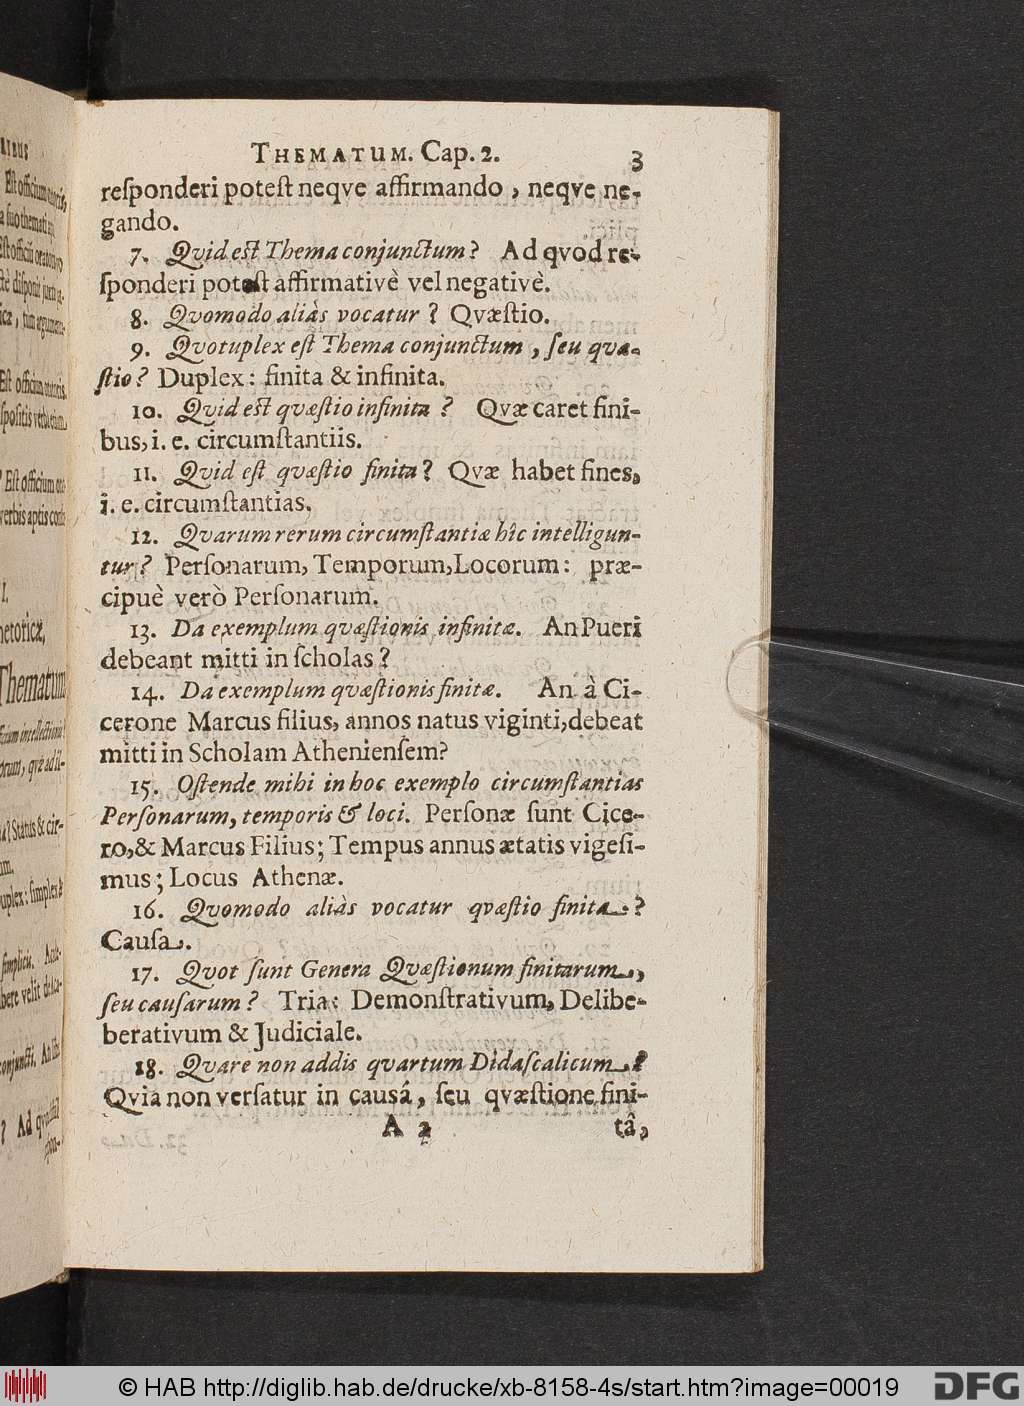 THEMATUM. Cap. 2. 3
reſponderi poteſt neqve affirmando, neqve ne-
gando.
7. Qvid eſt Thema conjunctum? Ad qvod re-
ſponderi poteſt affirmativè vel negativè.
8. Qvomodo aliàs vocatur? Qvæſtio.
9. Qvotuplex eſt Thema conjunctum, ſeu qvæ-
ſtio? Duplex: finita & infinita.
10. Qvid eſt qvæſtio infinita? Qvæ caret fini-
bus, i. e. circumſtantiis.
11. Qvid eſt qvæſtio finita? Qvæ habet fines,
i. e. circumſtantias.
12. Qvarum rerum circumſtantiæ hîc intelligun-
tur? Perſonarum, Temporum, Locorum: præ-
cipuè verò Perſonarum.
13. Da exemplum qvæſtionis infinitæ. An Pueri
debeant mitti in ſcholas?
14. Da exemplum qvæſtionis finitæ. An à Ci-
cerone Marcus filius, annos natus viginti, debeat
mitti in Scholam Athenienſem?
15. Oſtende mihi in hoc exemplo circumſtantias
Perſonarum, temporis & loci. Perſonæ ſunt Cice-
ro, & Marcus Filius; Tempus annus ætatis vigeſi-
mus; Locus Athenæ.
16. Qvomodo aliàs vocatur qvæſtio finita?
Cauſa.
17. Qvot ſunt Genera Qvæſtionum finitarum,
ſeu cauſarum? Tria: Demonſtrativum, Delibe-
berativum & Judiciale.
18. Qvare non addis qvartum Didaſcalicum?
Qvia non verſatur in causá, ſeu qvæſtione fini-
A 2 tâ,
© HAB http://diglib.hab.de/drucke/xb-8158-4s/start.htm?image=00019
DFG